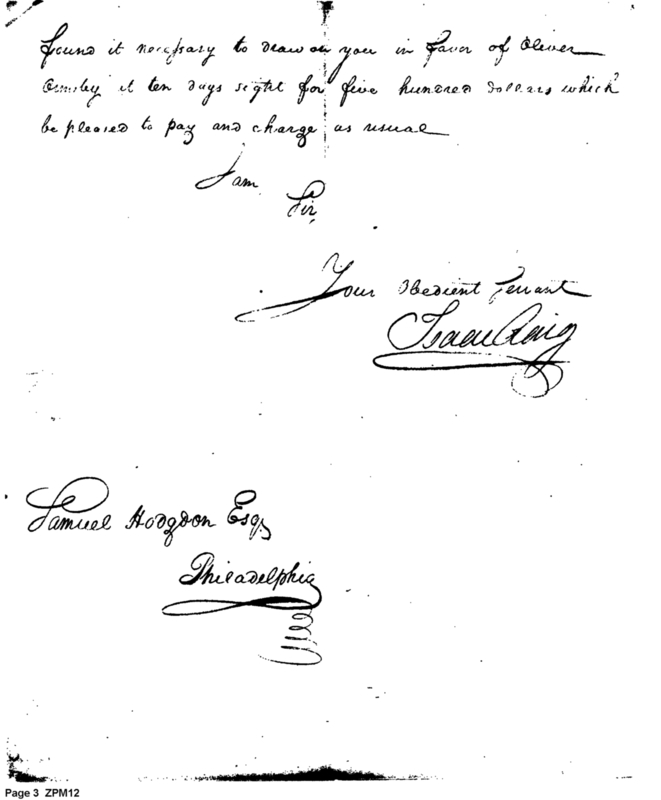 found it necessary to draw on you in favor of Oliver
Ormsby at ten days sight for five hundred dollars which
be pleased to pay and charge as usual
I am
Sir,
Your Obedient Servant
Isaac Craig
Samuel Hodgdon Esq.
Philadelphia
Page 3 ZPM12